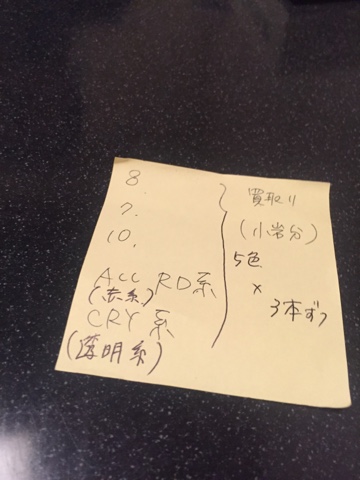 8.
7.
10.
ACC RD系
(赤系)
CRY系
(透明系)
買取り
(小岩分)
5色
×
3本ずつ